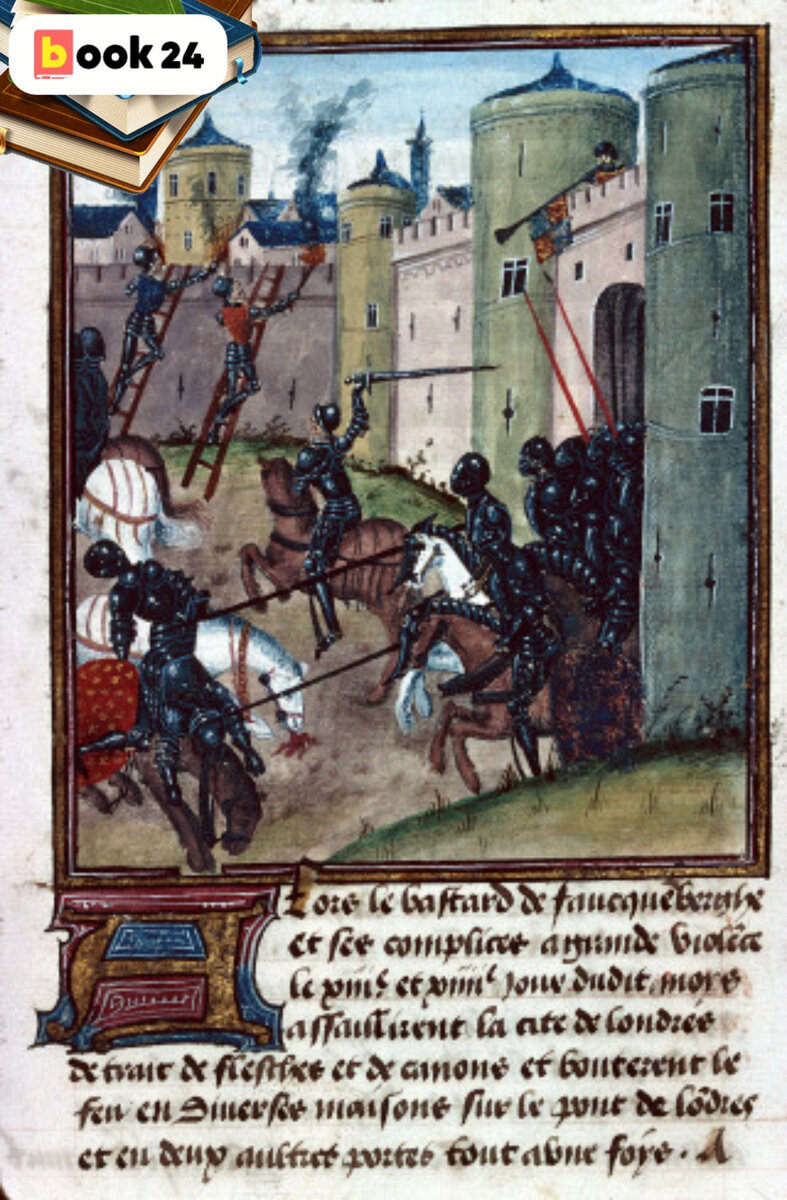 book 24
Alors le bastard de faucquēberghe
et ses complices a grande violēce
le xiiiᵉ et xiiiiᵉ jour dudit mois
assaillirent la cite de londres
de trait de flesches et de canons et bouterent le
feu en diverses maisons sur le pont de lōdres
et en deux aultres portes tout a une foys. A